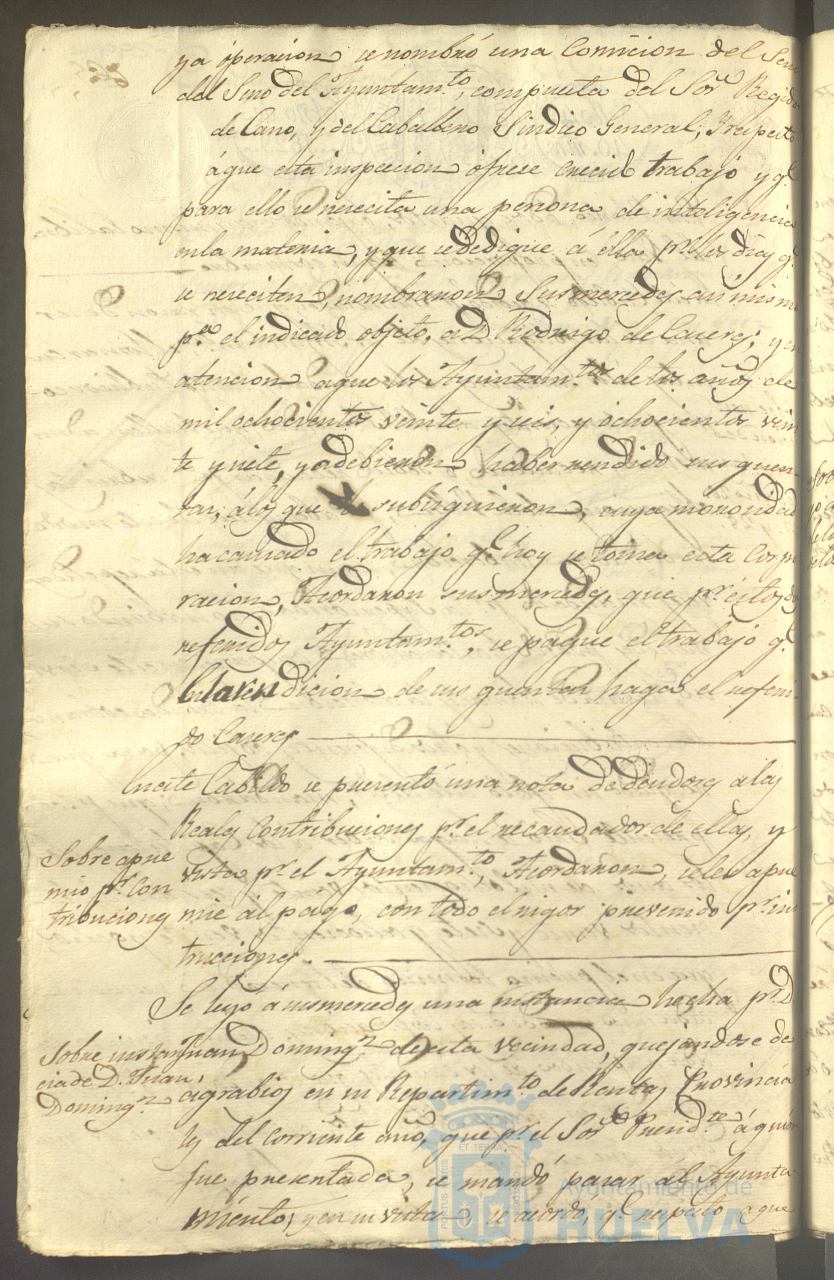 ya operacion se nombró una Comicion del Seno
del Seno del Ayuntam.to, compuesta del Sor. Regidor
de Cano, y del Caballero Sindico General; Y respecto
á que esta inspeccion ofrece crecido trabajo y q.e
para ello se necesita una persona de inteligencia
en la materia, y que se dedique á ella p.r los dias q.e
se neseciten, nombraron Susmercedes asi mismo
p.a el indicado objeto, a D. Rodrigo de Caceres; y en
atencion aque los Ayuntam.tos de los años de
mil ochocientos veinte y seis, y ochocientos vein
te y siete, ya debieron haber rendido sus quen
tas, á los que subsiguieron, cuya morosidad
ha causado el trabajo q.e hoy se toma esta Corpo
racion, Acordaron susmercedes, que p.r estos dos
referidos Ayuntam.tos, se pague el trabajo q.e
en la rendicion de sus quentas haga el referi
do Caceres
En este Cabildo se presentó una nota de Deudores a las
Reales Contribuciones p.r el recaudador de ellas, y
Sobre apre
mio p.r Con
tribuciones
vista p.r el Ayuntam.to, Acordaron, se les apre
mie al págo, con todo el rigor prevenido p.r ins
trucciones.
Se leyo á susmercedes una instancia hecha p.r D.
Sobre instan
cia de D. Juan
Doming.z
Juan Doming.z de esta vecindad, quejandose de
agrabios en su Repartim.to de Rentas Provincia
les del corriente año, que p.r el Sor. Presid.te á quien
fue presentada, se mandó pasar al Ayunta
miento; y en su vista, se acordo, q.e respecto a que
Ayuntamiento de
HUELVA